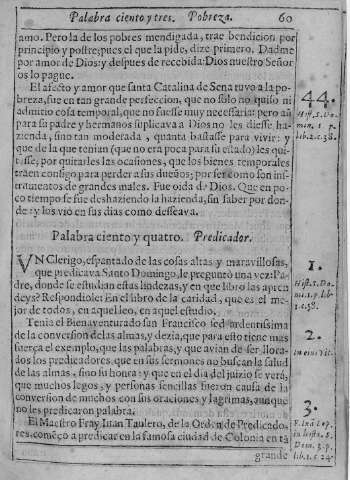 Palabra ciento y tres. Pobreza. 60
amo. Pero la de los pobres mendigada, trae bendicion por
principio y postre; pues el que la pide, dize primero. Dadme
por amor de Dios: y despues de recebida: Dios nuestro Señor
os lo pague.
El afecto y amor que santa Catalina de Sena tuvo a la po-
breza, fue en tan grande perfeccion, que no solo no quiso ni
admitio cosa temporal, que no fuesse muy necessaria: pero aũ
para su padre y hermanos suplicava a Dios no les diesse ha-
zienda, sino tan moderada, quanta bastasse para vivir: y
que de la que tenian (que no era poca para su estado) les qui-
tasse; por quitarles las ocasiones, que los bienes temporales
traen consigo para perder a sus dueños; por ser como son ins-
trumentos de grandes males. Fue oida d̃ Dios. Que en po-
co tiempo se fue deshaziendo la hazienda, sin saber por don-
de: y los vio en sus dias como desseava.
44.
Hist. S. Do-
min. 2. p.
lib. 2. c. 38.
Palabra ciento y quatro. Predicador.
VN Clerigo, espantado de las cosas altas y maravillosas,
que predicava Santo Domingo, le preguntò una vez: Pa-
dre, donde se estudian estas lindezas, y en que libro las apren
deys? Respondiole: En el libro de la caridad, que es el me-
jor de todos, en aquel leo, en aquel estudio.
1.
Hist. S. Do-
mi. 1. p. lib.
1. c. 58.
Tenia el Bienaventurado san Francisco sed ardentissima
de la conversion de las almas, y dezia, que para esto tiene mas
fuerça el exemplo, que las palabras, y que avian de ser llora-
dos los predicadores, que en sus sermones no buscan la salud
de las almas, sino su honra: y que en el dia del juizio se verà,
que muchos legos, y personas sencillas fueron causa de la
conversion de muchos con sus oraciones y lagrimas, aunque
no les predicaron palabra.
2.
In eius Vit.
El Maestro Fray Iuan Taulero, de la Orden de Predicado-
res, começò a predicar en la famosa ciudad de Colonia en tã
grande
3.
lib. 2. c. 24.